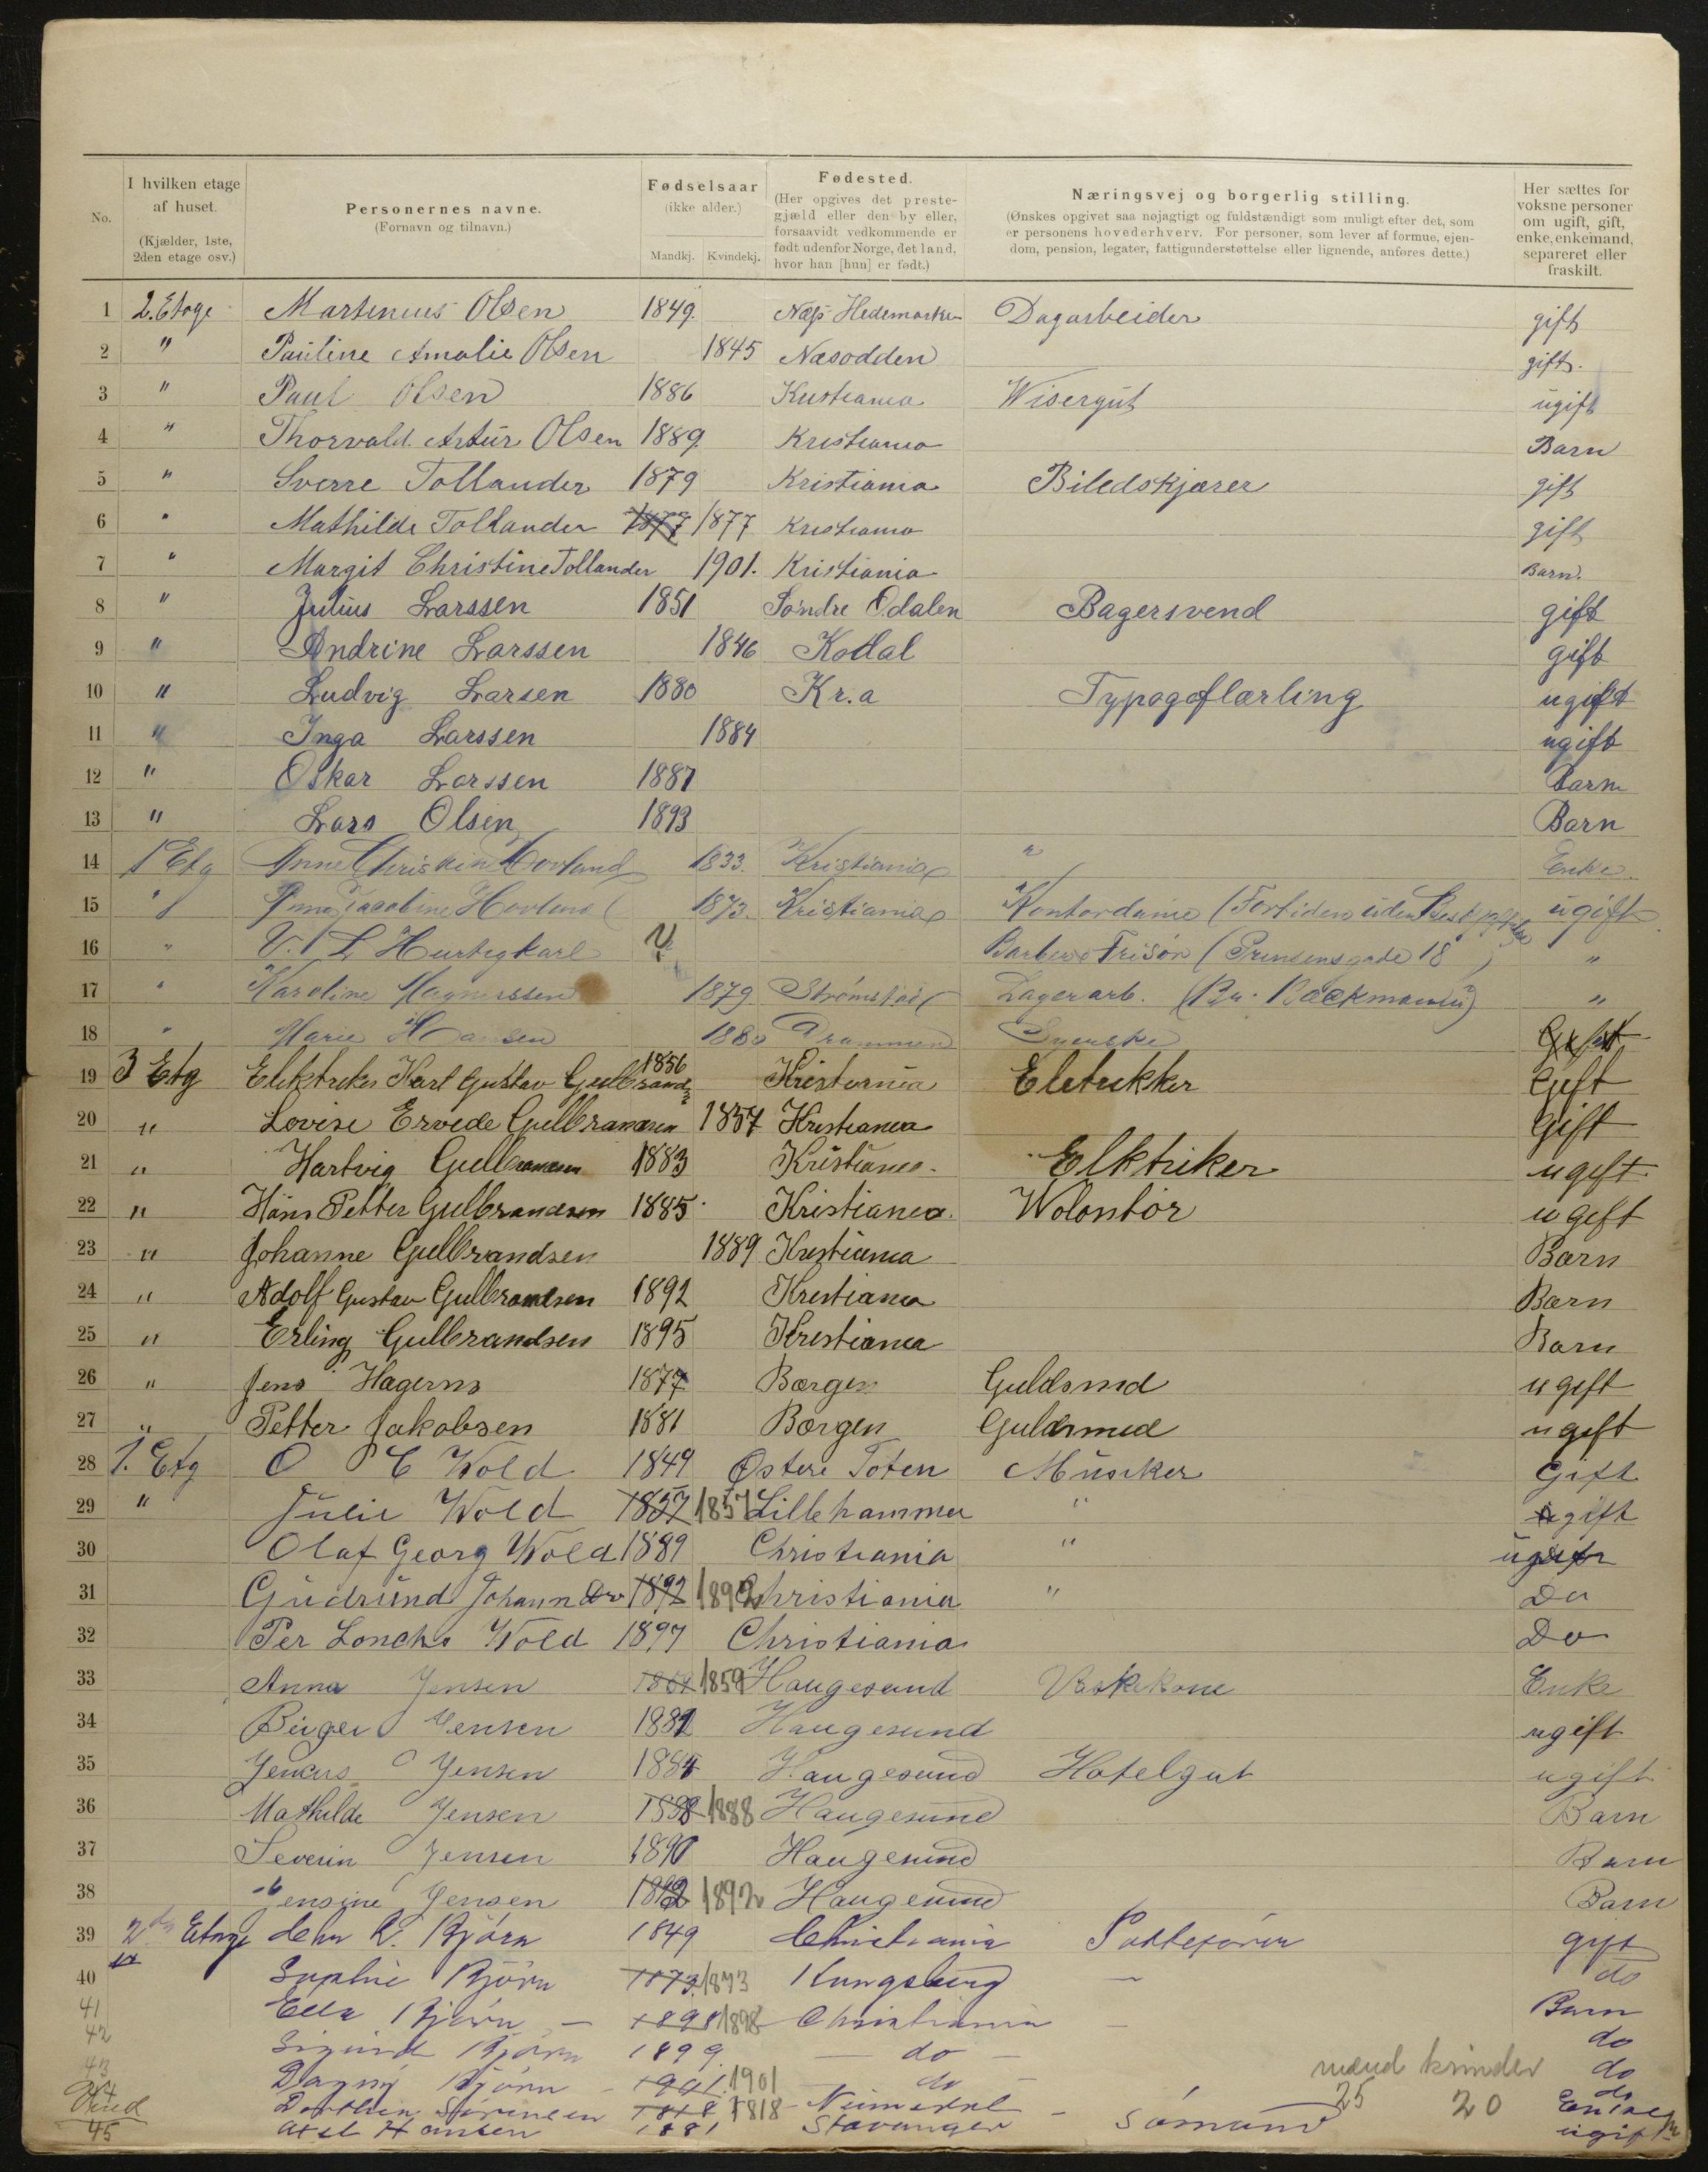 No.
I hvilken etage af huset. (Kjælder, 1ste, 2den etage osv.)
Personernes navne. (Fornavn og tilnavn.)
Fødselsaar (ikke alder.) Mandkj. Kvindekj.
Fødested. (Her opgives det prestegjæld eller den by eller, forsaavidt vedkommende er født udenfor Norge, det land, hvor han [hun] er født.)
Næringsvej og borgerlig stilling. (Ønskes opgivet saa nøjagtigt og fuldstændigt som muligt efter det, som er personens hovederhverv. For personer, som lever af formue, ejendom, pension, legater, fattigunderstøttelse eller lignende, anføres dette.)
Her sættes for voksne personer om ugift, gift, enke, enkemand, separeret eller fraskilt.
1 2. Etage Martinius Olsen 1849. Næs Hedemarken Dagarbeider gift
2 " Pauline Amalie Olsen 1845 Næsodden gift.
3 " Paul Olsen 1886 Kristiania Wisergut ugift
4 " Thorvald Artur Olsen 1889. Kristiania Barn
5 " Sverre Tollander 1879 Kristiania Biledskjærer gift
6 " Mathilde Tollander 1877 1877 Kristiania gift
7 " Margit Christine Tollander 1901. Kristiania Barn.
8 " Julius Larssen 1851 Søndre Odalen Bagersvend gift
9 " Andrine Larssen 1846 Kodal gift
10 " Ludvig Larsen 1880 Kr.a Typogaflærling ugift
11 " Inga Larssen 1884 ugift
12 " Oskar Larssen 1887 Barn
13 " Lars Olsen 1893 Barn
14 1 Etg Anne Christine Hovland 1833. Kristiania " Enke.
15 " Anna Jacobine Hovland 1873. Kristiania Kontordame (Fortiden uden ugift
16 " V. L Hurtigkarl Barber & Frisör (Prinsensgade 18) "
17 " Karoline Magnussen 1879 Strømstad Lagerarb. "
18 " Marie Hansen 1880 Drammen Syerske
19 3 Etg Elektriker Karl Gustav Gulbrands 1856 Kristiania Eletrikker Gift
20 " Lovise Ervede Gulbrandsen 1857 Kristiania Gift
21 " Hartvig Gulbransen 1883 Kristiania. Elktriker ugift
22 " Hans Petter Gulbrandsen 1885. Kristiania. Wolontør ugift
23 " Johanne Gulbrandsen 1889 Kristiania Barn
24 " Adolf Gustav Gulbrandsen 1892 Kristiania Barn
25 " Erling Gulbrandsen 1895 Kristiania Barn
26 " Jens Hagerns 1877 Bærgen Guldsmd ugift
27 " Petter Jakobsen 1881 Bærgen Guldsmed ugift
28 1. Etg O C Wold 1849 Østere Toten Musiker Gift
29 " Julie Wold 1857 1857 Lillehammer " gift
30 Olaf Georg Wold 1889 Christiania " ugift
31 Gudrund Johann Do 1892 1892 Christiania " Do
32 Per Loncks Wold 1897 Christiania Do
33 Anna Jensen 1859 Haugesund Vaskekone Enke
34 Birger Jensen 1882 Haugesund ugift
35 Jensen 1884 Haugesund Hotelgut ugift
36 Mathilde Jensen 1888 1888 Haugesund Barn
37 Severin Jensen 1890 Haugesund Barn
38 Jensine Jensen 1892 1892 Haugesund Barn
39 2den Etage Chr R. Björn 1849 Christiania gift
40 Sophie Björn 1873 1873 Kongsberg - do
41 Ella Björn - 1898 1898 Christiania - Barn
42 Sigurd Björn 1899 - do - do
43 Dagny Björn - 1901. 1901 - do - do
mænd kvinder
25 20
44 Sörensen 1818 1818 - do Enke
45 Axel Hansen 1881 Stavanger Sømand ugift